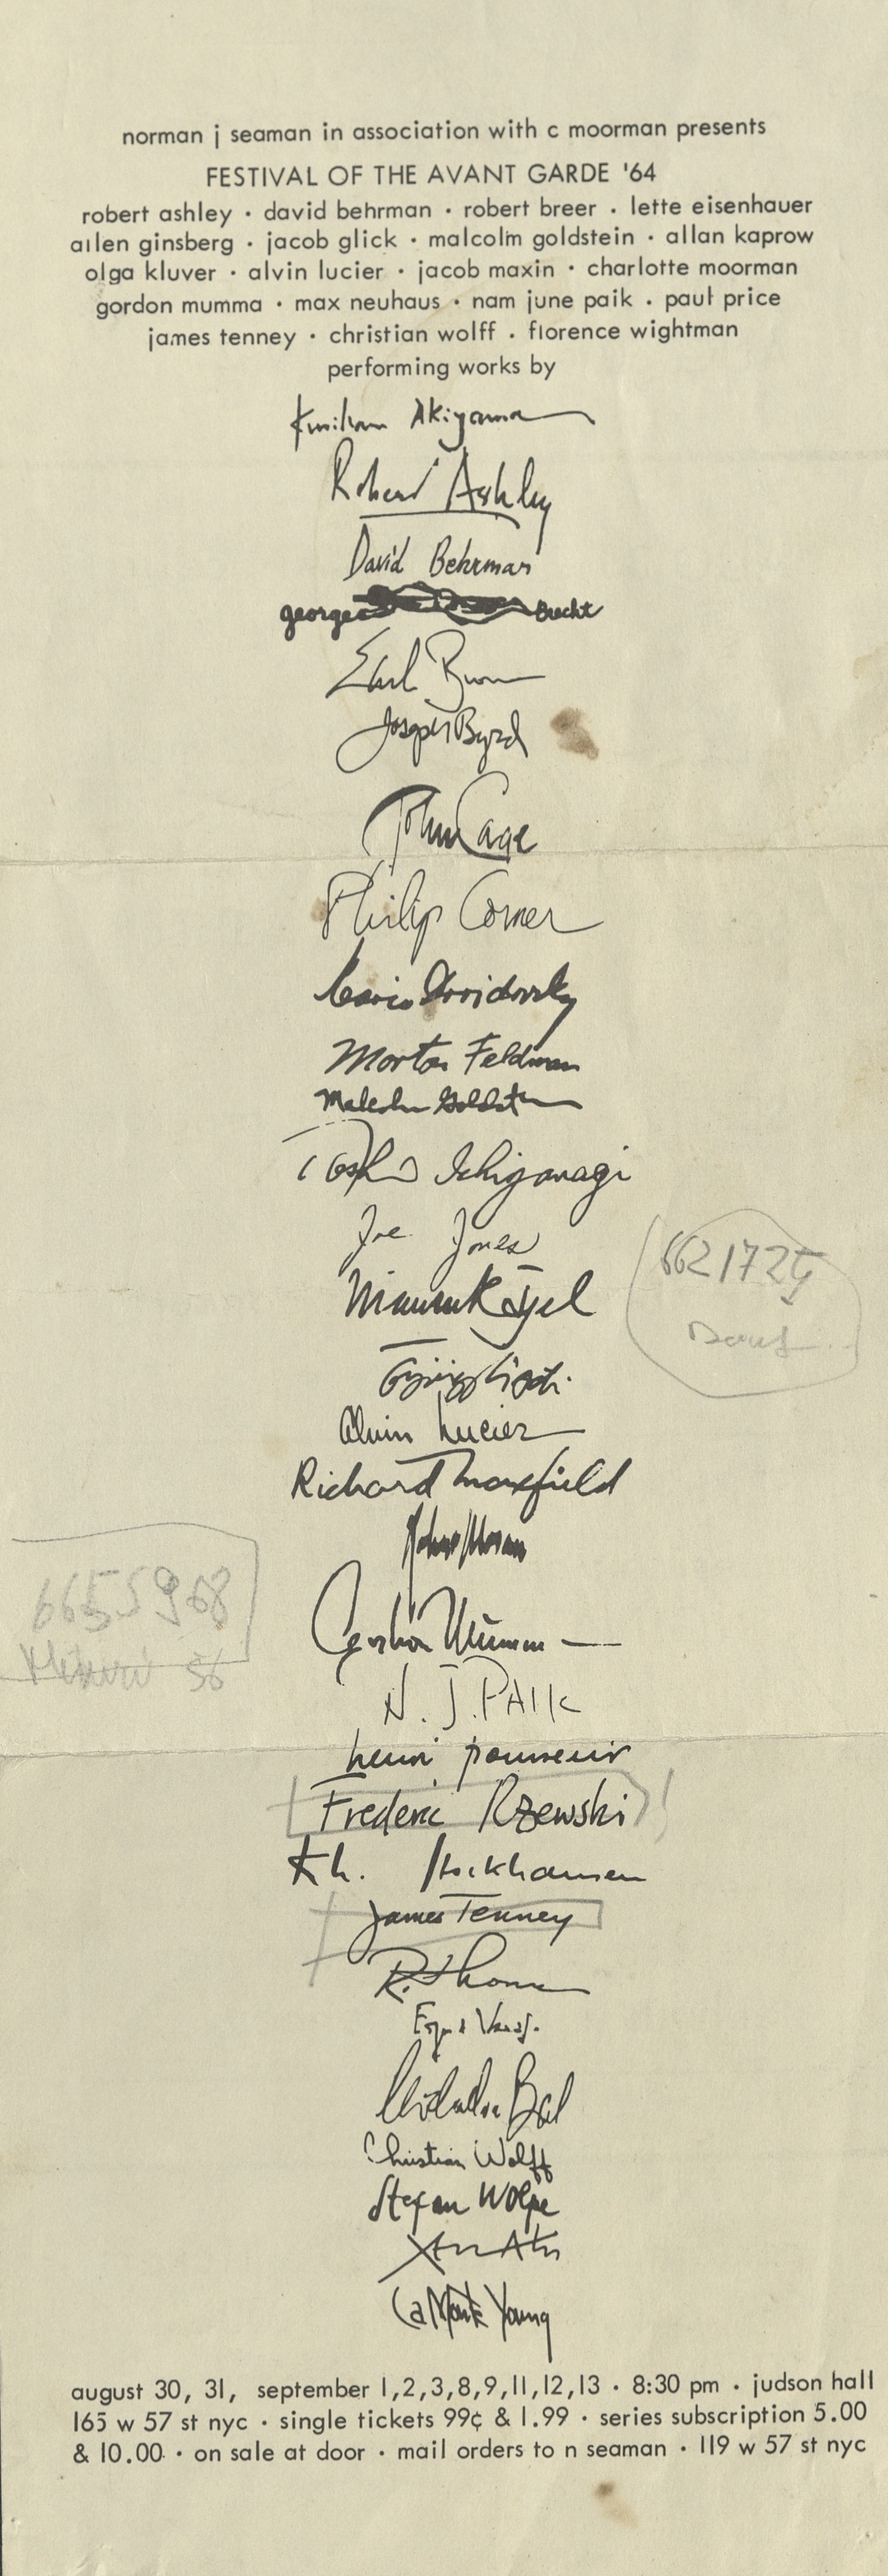 norman j seaman in association with c moorman presents
FESTIVAL OF THE AVANT GARDE '64
robert ashley · david behrman · robert breer · lette eisenhauer
allen ginsberg · jacob glick · malcolm goldstein · allan kaprow
olga kluver · alvin lucier · jacob maxin · charlotte moorman
gordon mumma · max neuhaus · nam june paik · paul price
james tenney · christian wolff · florence wightman
performing works by
Kuniharu Akiyama
Robert Ashley
David Behrman
george Brecht
Earle Brown
Joseph Byrd
John Cage
Philip Corner
Mario Davidovsky
Morton Feldman
Malcolm Goldstein
Toshi Ichiyanagi
Joe Jones
6621725
Mauricio Kagel
György Ligeti
Alvin Lucier
Richard Maxfield
Robert Moran
6655968
56
Gordon Mumma
N. J. PAIK
henri pousseur
Frederic Rzewski
K h. Stockhausen
James Tenney
Edgard Varèse
Christian Wolff
Stefan Wolpe
La Monte Young
august 30, 31, september 1,2,3,8,9,11,12,13 · 8:30 pm · judson hall
165 w 57 st nyc · single tickets 99¢ & 1.99 · series subscription 5.00
& 10.00 · on sale at door · mail orders to n seaman · 119 w 57 st nyc